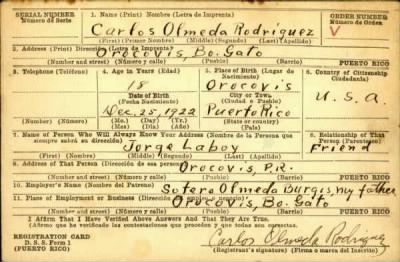 SERIAL NUMBER
Número de Serie
1. Name (Print) Nombre (Letra de Imprenta)
ORDER NUMBER
Número de Orden
Carlos Olmeda Rodríguez
V
(First) (Primer Nombre) (Middle) (Segundo) (Last) (Apellido)
2. Address (Print) Dirección (Letra de Imprenta)
Orocovis, Bo. Gato
PUERTO RICO
3. Telephone (Teléfono)
4. Age in Years (Edad)
5. Place of Birth (Lugar de Nacimiento)
6. Country of Citizenship
Ciudadanía)
18
Orocovis
Date of Birth
(Fecha Nacimiento)
City or Town
(Ciudad o Pueblo)
U.S.A.
Dec. 25 1922
Puerto Rico
(Mo.) (Day) (Yr.)
(Mes) (Día) (Año)
(State or country)
7. Name of Person Who Will Always Know Your Address (Nombre de la Persona que
siempre sabrá su dirección)
8. Relationship of That
Person (Parentesco)
Jorge Laboy
Friend
(First) (Nombre) (Middle) (Segundo) (Last) (Apellido)
9. Address of That Person (Dirección de esa persona)
Orocovis, P.R.
PUERTO RICO
10. Employer's Name (Nombre del Patrono)
Sotero Olmeda Burgis, my father
11. Place of Employment or Business
Orocovis, Bo. Gato
(Number) (Número) (Street) (Calle) (Town) (Pueblo) (Barrio)
PUERTO RICO
I Affirm That I Have Verified Above Answers And That They Are True.
(Afirmo que he verificado las contestaciones que preceden y que todas son correctas.
REGISTRATION CARD
D. S. S. Form 1
(PUERTO RICO)
Carlos Olmeda Rodriguez
(Registrant's signature) (Firma o marca del Inscrito)